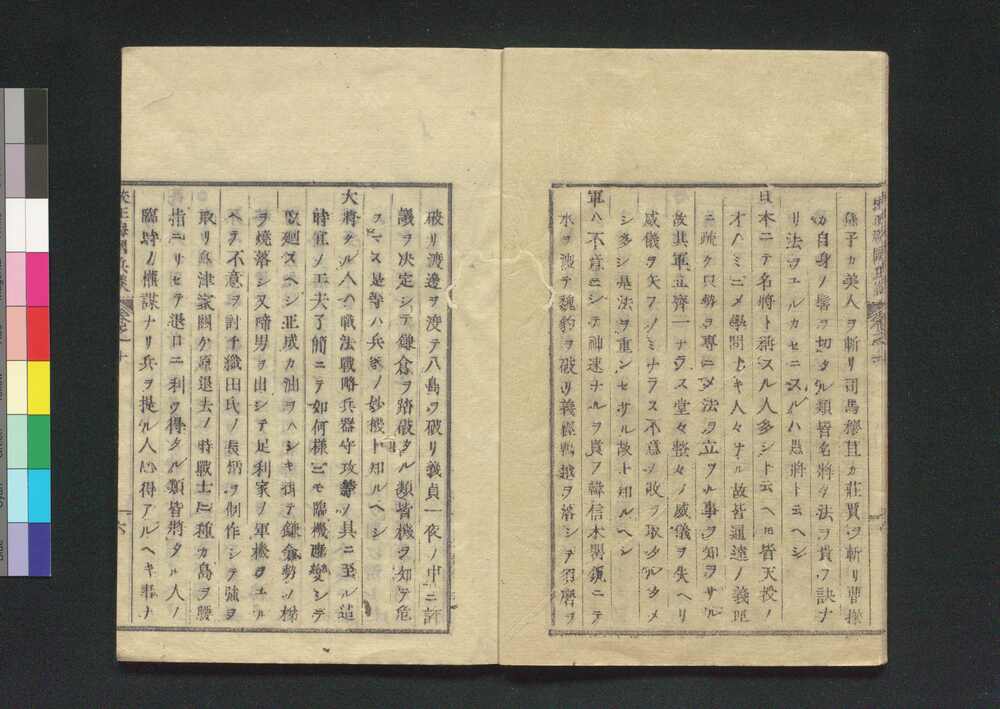 孫子カ美人ヲ斬リ司馬穰苴カ莊賈ヲ斬リ曹操
カ自身ノ髻ヲ切タル類皆名將タ法ヲ貴フ訣ナ
リ法ヲユルカセニスルハ愚將ト云ヘシ
日本ニテ名將ト稱スル人多シト云ヘ𪜈皆天授ノ
才ノミニメ學問トキ人々ナル故皆通達ノ義
ニ疏ク只勢ヲ專ニメ法ヲ立ヲル事ヲ知ラサル
故其軍立齊一ナラス堂々整々ノ威儀ヲ失ヘリ
威儀ヲ失フノミナラス不意ノ敗ヲ取タルタメ
シ多シ是法ヲ重ンセサル故ト知ルヘシ
軍ハ不意ニシテ神速ナルヲ貴フ韓信木罌瓶ニテ
水ヲ渡テ魏豹ヲ破リ義經鵯越ヲ落シテ須磨ヲ
破リ渡邊ヲ渡テ八島ヲ破リ義貞一夜ノ中ニ評
議ヲ決定シテ鎌倉ヲ踏破タル類皆機ヲ知テ危
ヲマス是等ハ兵家ノ妙機ト知ルヘシ
大將タル人ハ職法戰略兵器守攻等ノ具ニ至ル迠
時宜ノ工夫了簡ニテ如何様ニモ臨機應變シテ
取廻スヘシ正成カ油ヲハシキ掛テ鎌倉勢ノ梯
ヲ燒落シ又啼男ヲ出シテ足利家ノ軍機ヲユル
ヘテ不意ヲ討チ織田氏ノ長柄ヲ制作シテ強ヲ
取リ島津家關ケ原退去ノ時戰士ニ種カ島ヲ腰
指ニサセテ退口ニ利ヲ得タル類皆將タル人ノ
臨時ノ權謀ナリ兵ヲ提ル人心得アルヘキ事ナ